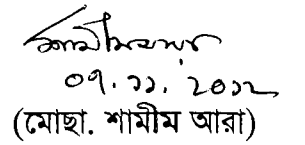 ০৭.১১.২০১২
(মোছা. শামীম আরা)